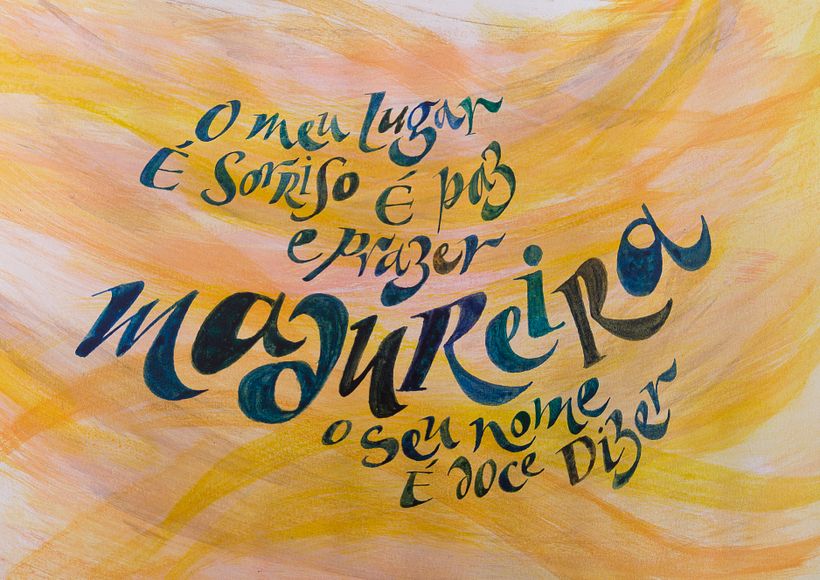 O meu lugar
É SorRiso É paz
e prazer
maduReiRa
o seu nome
É doce Dizer